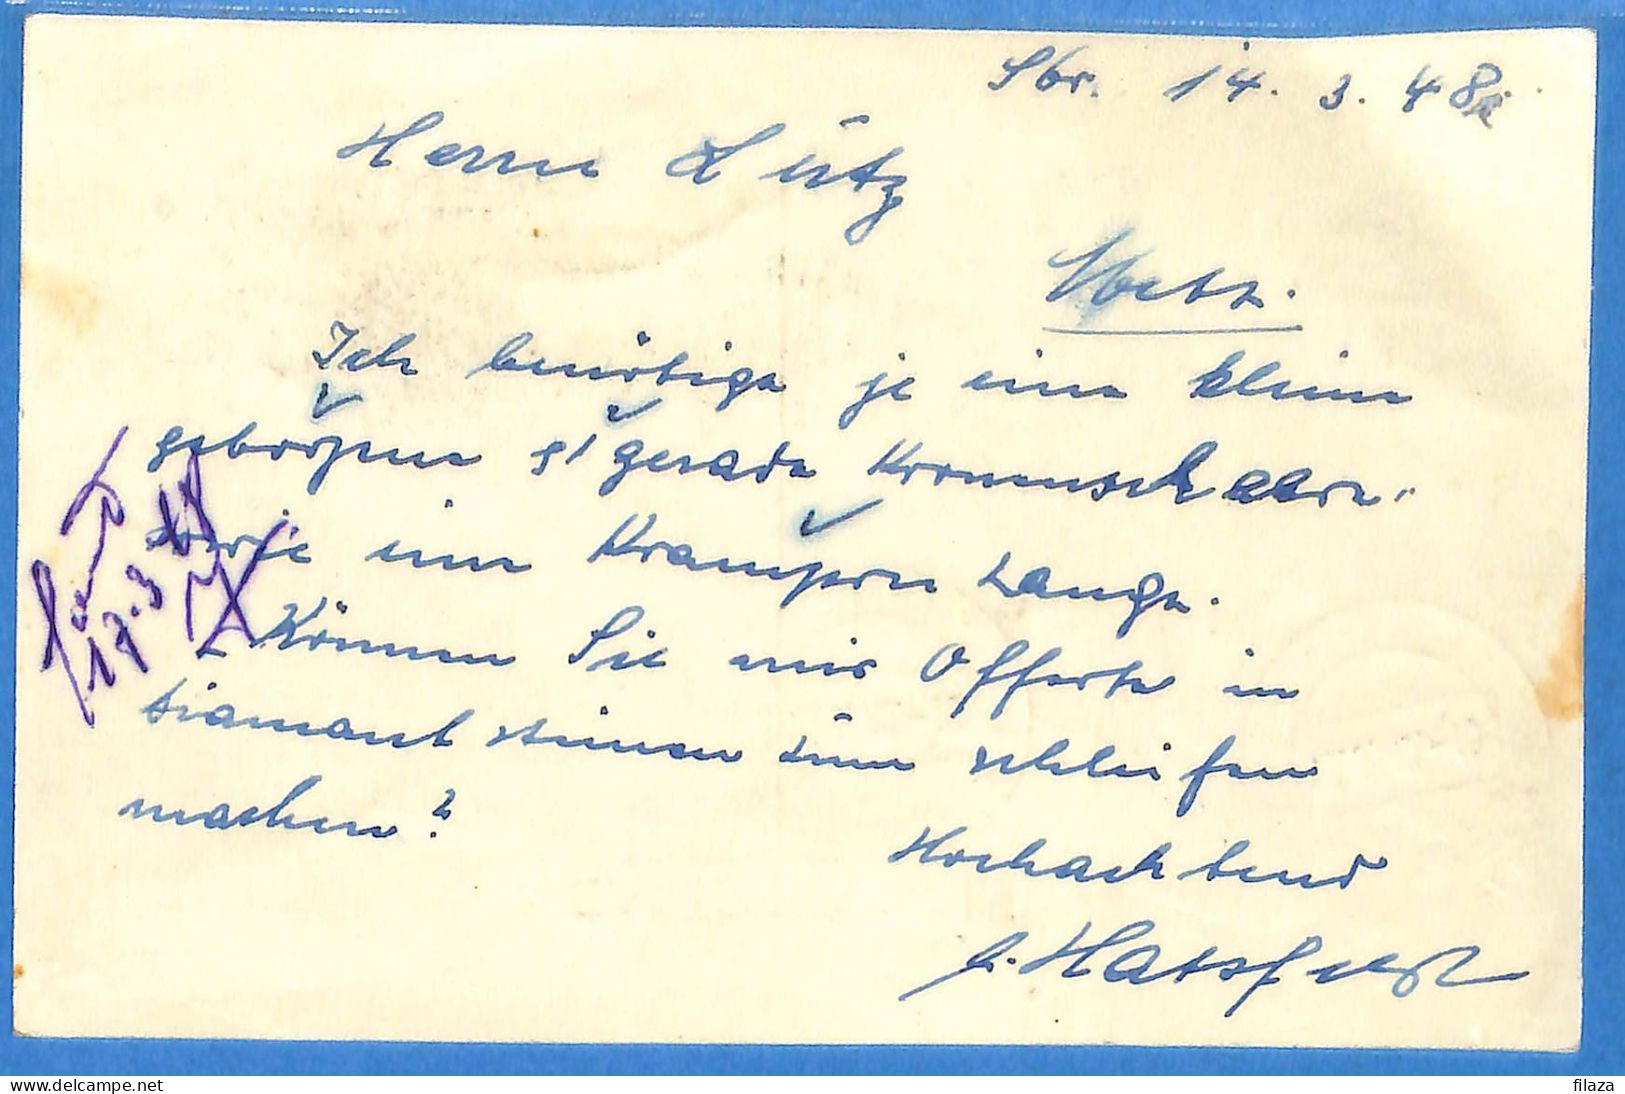 Sbr. 14. 3. 48
Herrn Lütz
Metz.
Ich benötige je eine kleine
gebogene & gerade Kronenschere
sowie eine Krampon Zange.
Können Sie mir Offerte in
Diamant steinen zum schleifen
machen?
Hochachtend
17.3.48
filaza